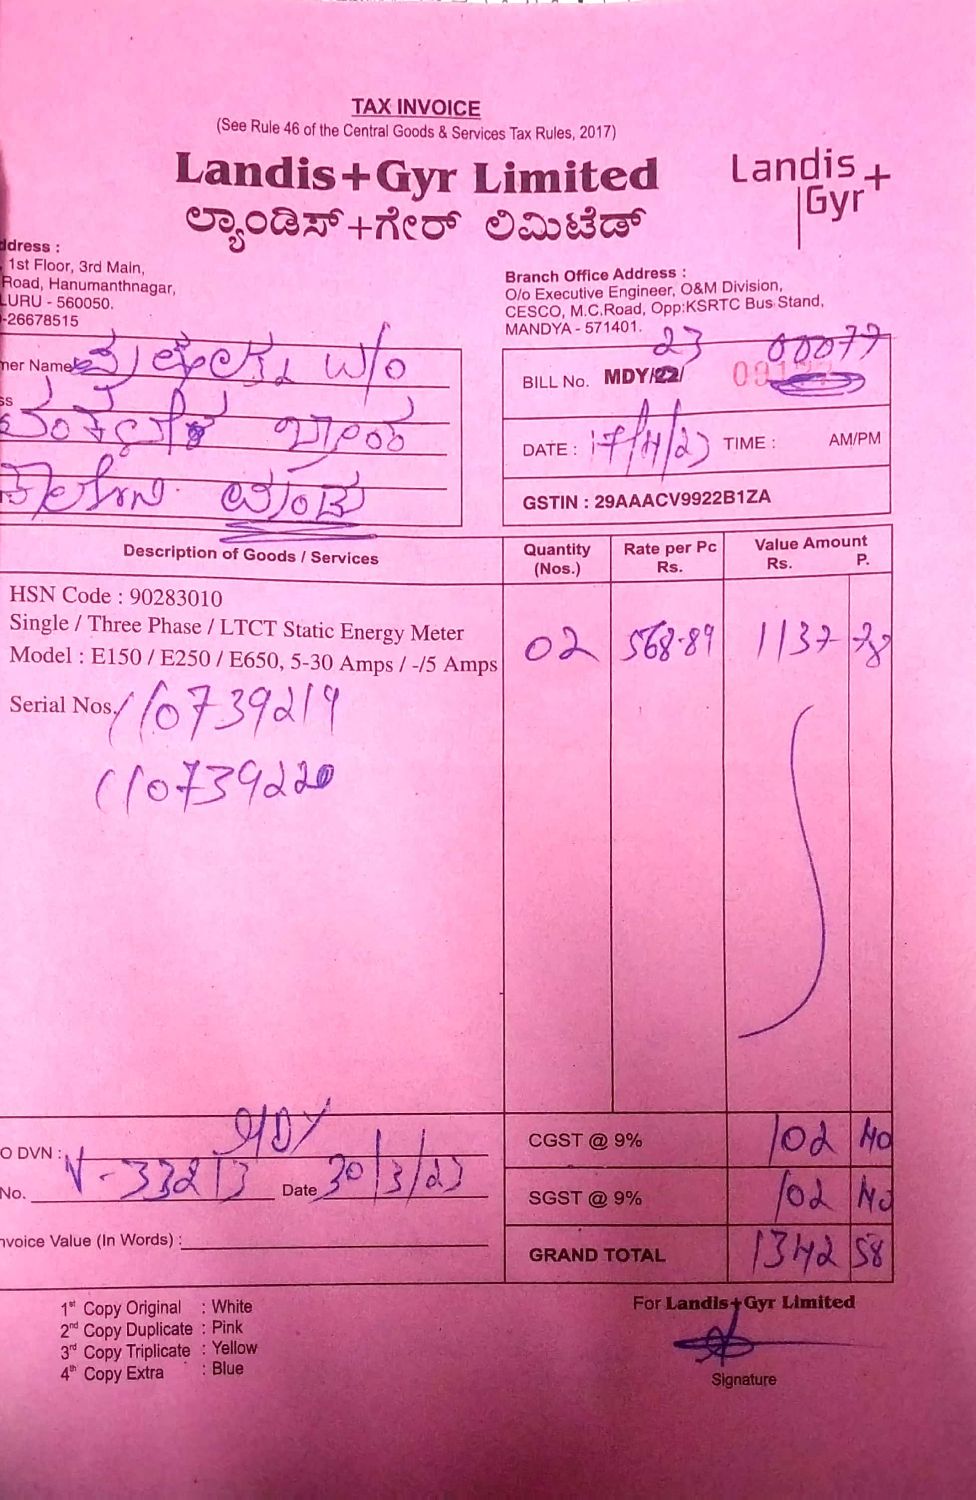 TAX INVOICE
(See Rule 46 of the Central Goods & Services Tax Rules, 2017)
Landis+Gyr Limited
Landis+
Gyr
ಲ್ಯಾಂಡಿಸ್+ಗೇರ್ ಲಿಮಿಟೆಡ್
ddress :
1st Floor, 3rd Main,
Road, Hanumanthnagar,
LURU - 560050.
-26678515
Branch Office Address :
O/o Executive Engineer, O&M Division,
CESCO, M.C.Road, Opp:KSRTC Bus Stand,
MANDYA - 571401.
ner Name W/o
ss
23 00077
BILL No. MDY/22/
DATE : 17/4/23 TIME : AM/PM
GSTIN : 29AAACV9922B1ZA
Description of Goods / Services Quantity (Nos.) Rate per Pc Rs. Value Amount Rs. P.
HSN Code : 90283010
Single / Three Phase / LTCT Static Energy Meter
Model : E150 / E250 / E650, 5-30 Amps / -/5 Amps
02 568-89 1137 78
Serial Nos. 110739219
110739220
O DVN : MDY
No. V-33213 Date 30/3/23
nvoice Value (In Words) :
CGST @ 9% 102 40
SGST @ 9% 102 40
GRAND TOTAL 1342 58
1st Copy Original : White
2nd Copy Duplicate : Pink
3rd Copy Triplicate : Yellow
4th Copy Extra : Blue
For Landis+Gyr Limited
Signature